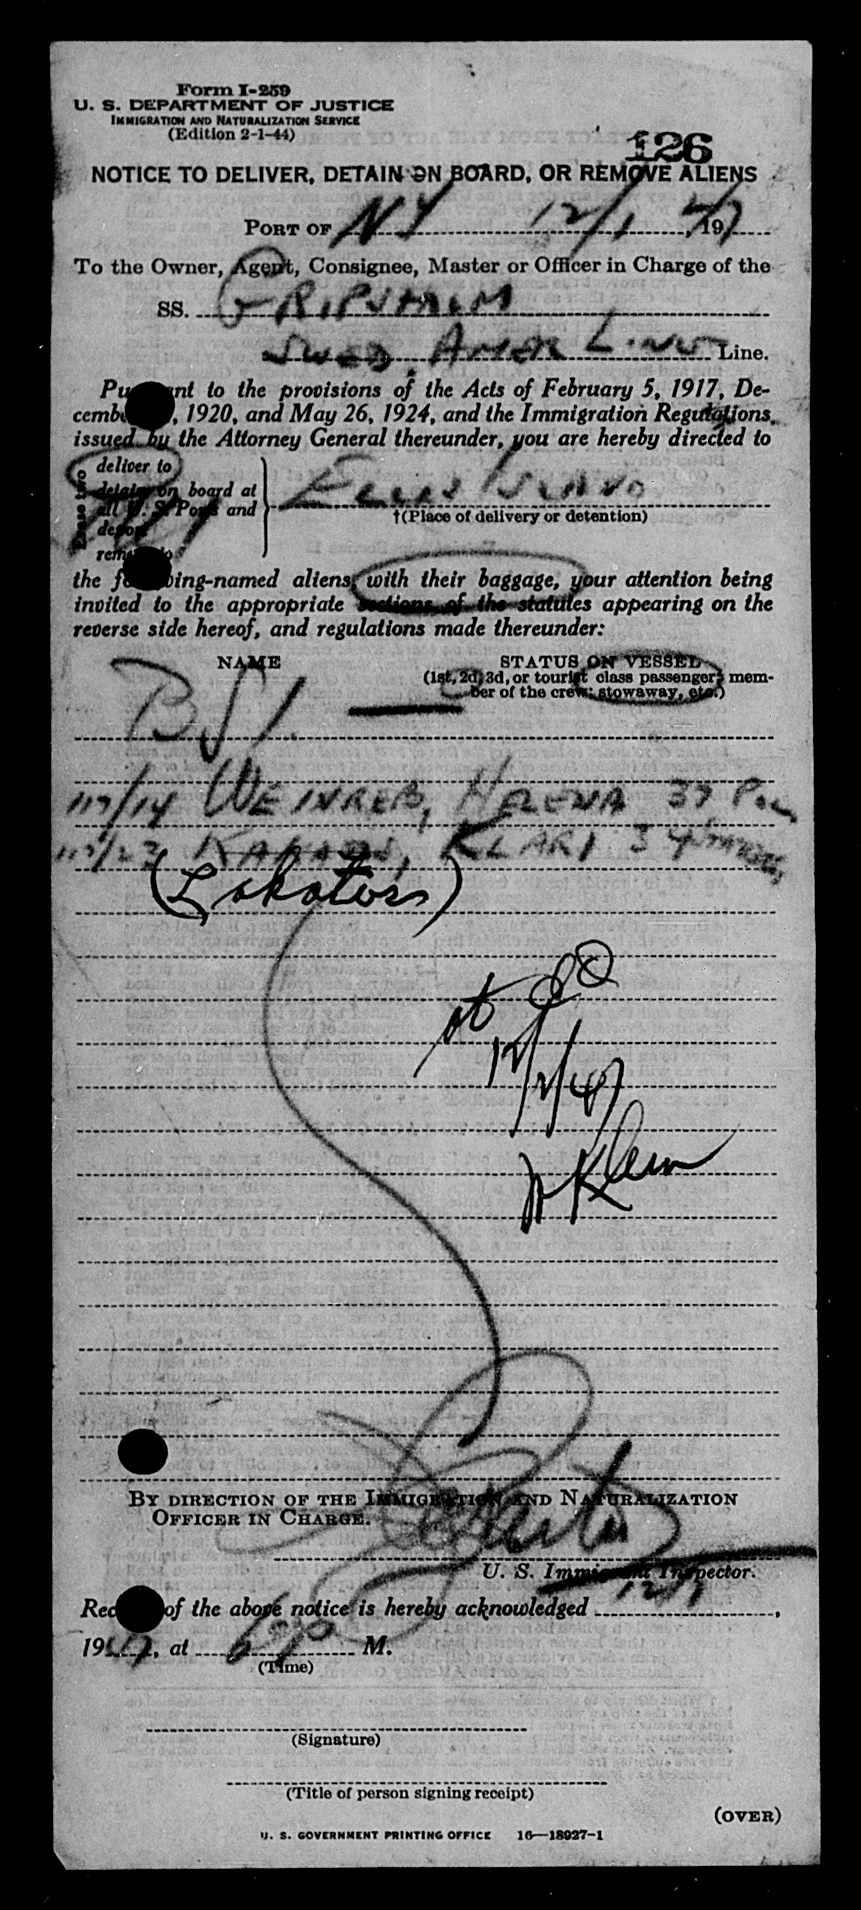 Form I-259
U. S. DEPARTMENT OF JUSTICE
IMMIGRATION AND NATURALIZATION SERVICE
(Edition 2-1-44)
126
NOTICE TO DELIVER, DETAIN ON BOARD, OR REMOVE ALIENS
PORT OF NY 12/1, 1947
To the Owner, Agent, Consignee, Master or Officer in Charge of the
SS. GRIPSHOLM
SWED. AMER LINE Line.
Pursuant to the provisions of the Acts of February 5, 1917, De-
cember, 1920, and May 26, 1924, and the Immigration Regulations
issued by the Attorney General thereunder, you are hereby directed to
deliver to
detain on board at
all U. S. Ports and
remove to
ELLIS ISLAND
†(Place of delivery or detention)
the following-named aliens, with their baggage, your attention being
invited to the appropriate sections of the statutes appearing on the
reverse side hereof, and regulations made thereunder:
NAME
STATUS ON VESSEL
(1st, 2d, 3d, or tourist class passenger; mem-
ber of the crew; stowaway, etc.)
BSI.
117/14 WEINREB, HELENA 37
117/23 KLARI 34
(Lakatos)
at
12/2/47
W Klein
BY DIRECTION OF THE IMMIGRATION AND NATURALIZATION
OFFICER IN CHARGE.
U. S. Immigrant Inspector.
Receipt of the above notice is hereby acknowledged 12/1,
1947, at 6 p M.
(Time)
(Signature)
(Title of person signing receipt)
(OVER)
U. S. GOVERNMENT PRINTING OFFICE 16—18927-1